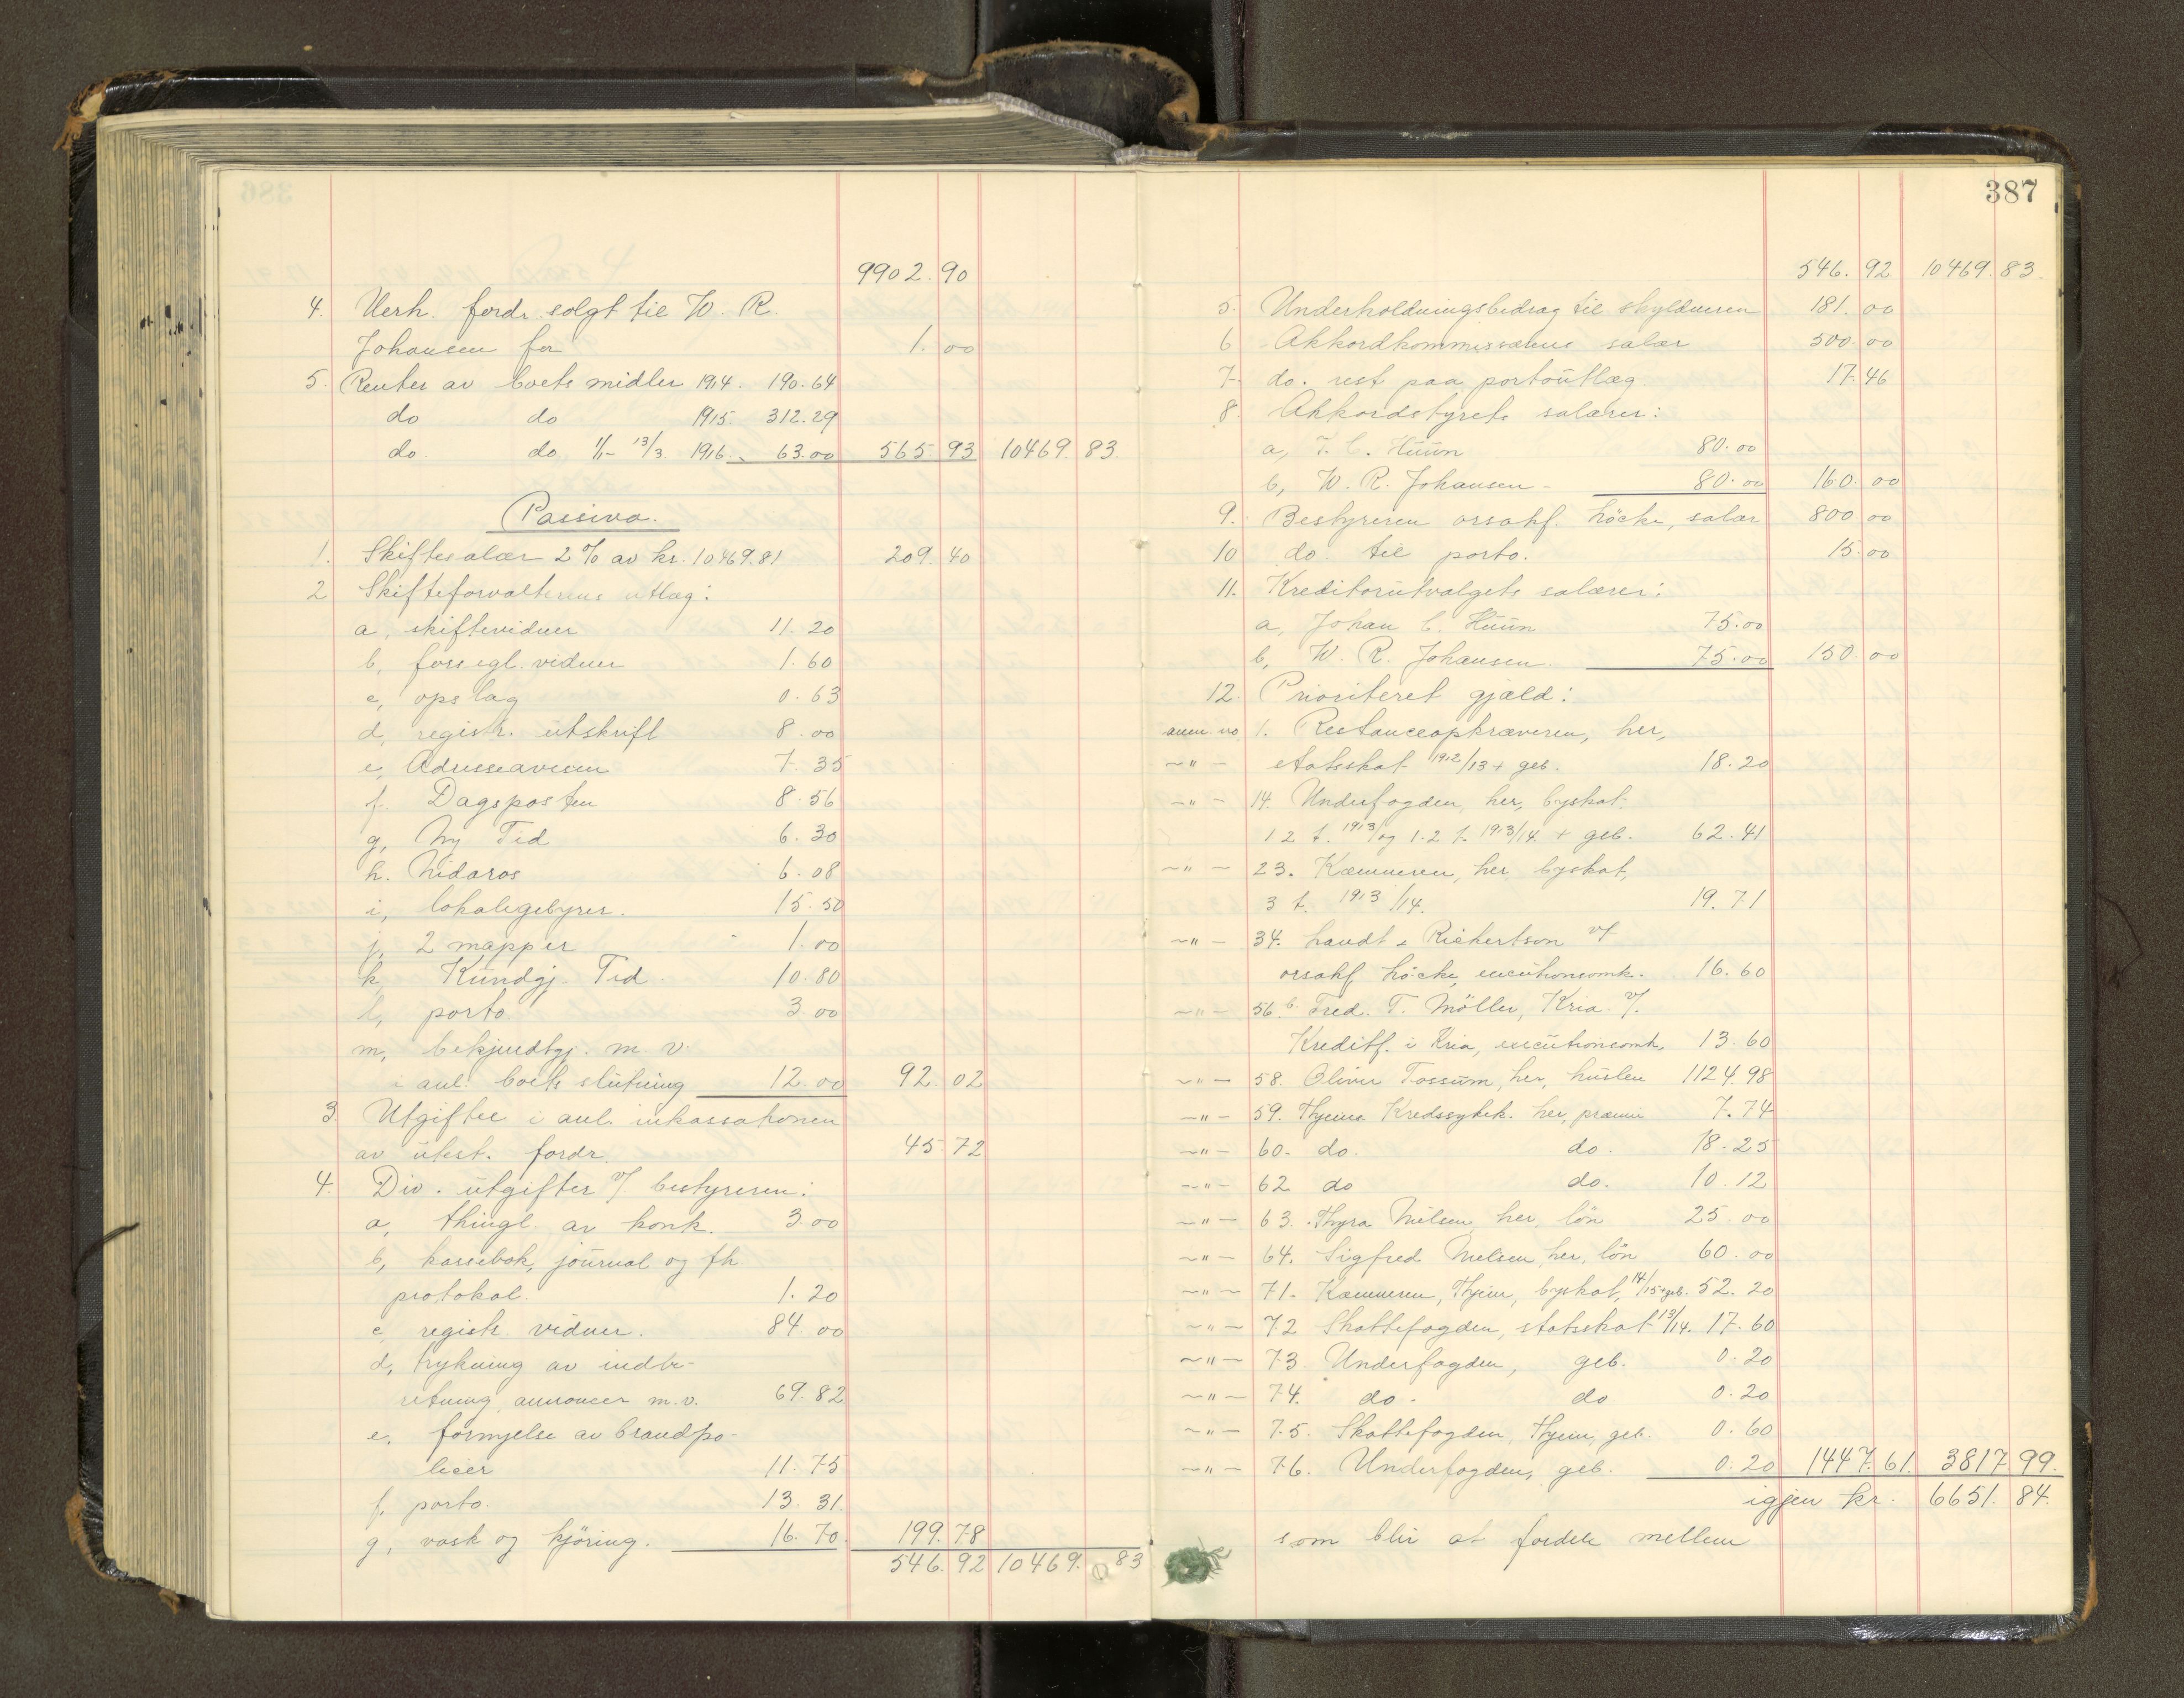 386
9902. 90
4. Uerh. fordr. solgt til W. R.
Johansen for 1. 00
5. Renter av boets midler 1914. 190.64
do do 1915. 312.29
do. do 1/1- 13/3 1916. 63.00 565. 93 10469. 83
Passiva.
1. Skiftesalær 2% av kr. 10469.81 209. 40
2 Skifteforvalterens utlæg:
a, skiftevidner 11. 20
b, forsegl. vidner 1. 60
c, opslag 0. 63
d, registr. utskrift 8. 00
e, Adresseavisen 7. 35
f. Dagsposten 8. 56
g, Ny Tid 6. 30
h. Nidaros 6. 08
i, lokalegebyrer. 15. 50
j, 2 mapper 1. 00
k, Kundgj. Tid. 10. 80
l, porto 3 00
m, bekjendtgj. m. v.
i anl. boets slutning 12. 00 92. 02
3. Utgifter i anl. inkassationen
av utest. fordr. 45. 72
4. Div. utgifter v/ bestyreren:
a, thingl. av konk. 3. 00
b, kassebok, journal og fh.
protokol. 1. 20
c, registr. vidner. 84. 00
d, trykning av indbe-
retning, annoncer m.v. 69. 82
e, fornyelse av brandpo-
licer 11. 75
f, porto. 13. 31.
g, vask og kjöring. 16. 70. 199. 78
546. 92 10469. 83
387
546. 92 10469. 83.
5. Underholdningsbidrag til skyldneren 181. 00
6 Akkordkommissærens salær 500. 00
7. do. rest paa portoutlæg. 17. 46
8. Akkordstyrets salærer:
a, J. C. Huun 80. 00
b, W. R. Johansen - 80. 00 160. 00
9. Bestyreren orsakf. Löcke, salær 800 00
10 do. til porto. 15. 00
11. Kreditorutvalgets salærer:
a, Johan C. Huun 75.00
b, W. R. Johansen. 75.00 150. 00
12. Prioriteret gjæld:
anm. no 1. Restanceopkræveren, her,
-"- statsskat 1912/13 + geb. 18.20
-"- 14. Underfogden, her, byskat.
1 2 t. 1913/ og 1.2 t. 1913/14. + geb. 62.41
-"- 23. Kæmneren, her, byskat,
3 t. 1913/14. 19.71
-"- 34. Landt & Rickertson v/
orsakf. Löcke, executionsomk. 16.60
-"- 56.b Fred. T. Möller, Kria. v/.
Kreditf. i Kria, executionsomk. 13.60
-"- 58. Oliver Tossum, her, husleie 1124.98
-"- 59. Thjems Kredssykek. her, præmie 7.74
-"- 60. do. do. 18.25
-"- 62 do do. 10.12
-"- 63. Thyra Nielsen, her, lön 25.00
-"- 64. Sigfred Nielsen, her, lön 60.00
-"- 71. Kæmneren, Thjem, byskat, 14/15 + geb. 52.20
-"- 72 Skattefogden, statsskat 13/14. 17.60
-"- 73. Underfogden, geb. 0.20
-"- 74. do. do 0.20
-"- 75. Skattefogden, Thjem, geb. 0.60
-"- 76. Underfogden, geb. 0.20 1447. 61. 3817. 99.
igjen kr. 6651. 84.
som blir at fordele mellem